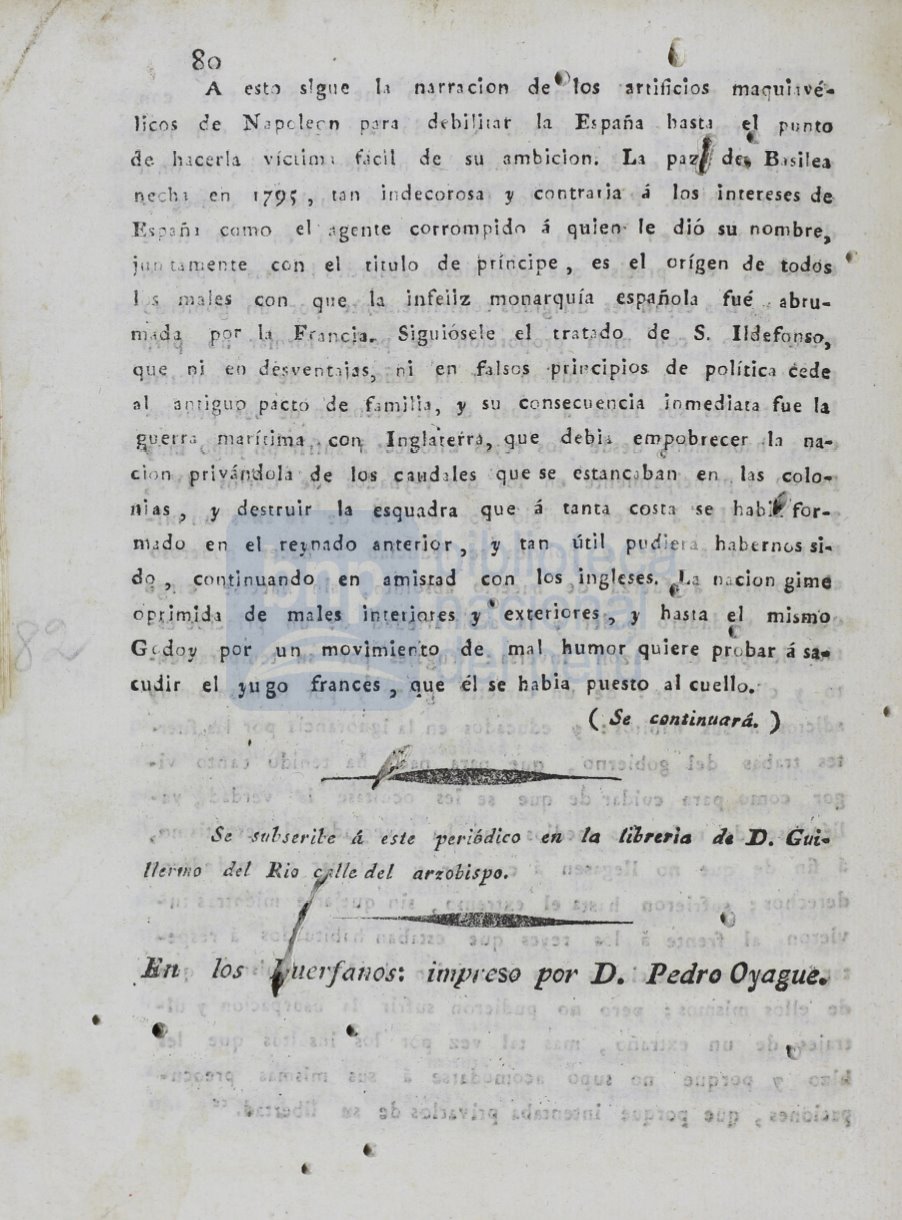 80
A esto sigue la narracion de los artificios maquiavé-
licos de Napoleon para debilitar la España hasta el punto
de hacerla víctima fácil de su ambicion. La paz de Basilea
hecha en 1795, tan indecorosa y contraria á los intereses de
España como el agente corrompido á quien le dió su nombre,
juntamente con el titulo de príncipe, es el orígen de todos
los males con que la infeliz monarquía española fué abru-
mada por la Francia. Siguiósele el tratado de S. Ildefonso,
que ni en desventajas, ni en falsos principios de política cede
al antiguo pacto de familia, y su consecuencia inmediata fue la
guerra marítima con Inglaterra, que debia empobrecer la na-
cion privándola de los caudales que se estancaban en las colo-
nias, y destruir la esquadra que á tanta costa se habia for-
mado en el reynado anterior, y tan útil pudiera habernos si-
do, continuando en amistad con los ingleses. La nacion gime
oprimida de males interiores y exteriores, y hasta el mismo
Godoy por un movimiento de mal humor quiere probar á sa-
cudir el yugo frances, que él se habia puesto al cuello.
(Se continuará.)
Se subscribe á este periódico en la librería de D. Gui-
llermo del Rio calle del arzobispo.
En los Huerfanos: impreso por D. Pedro Oyague.
82
bnp biblioteca
nacional
del perú